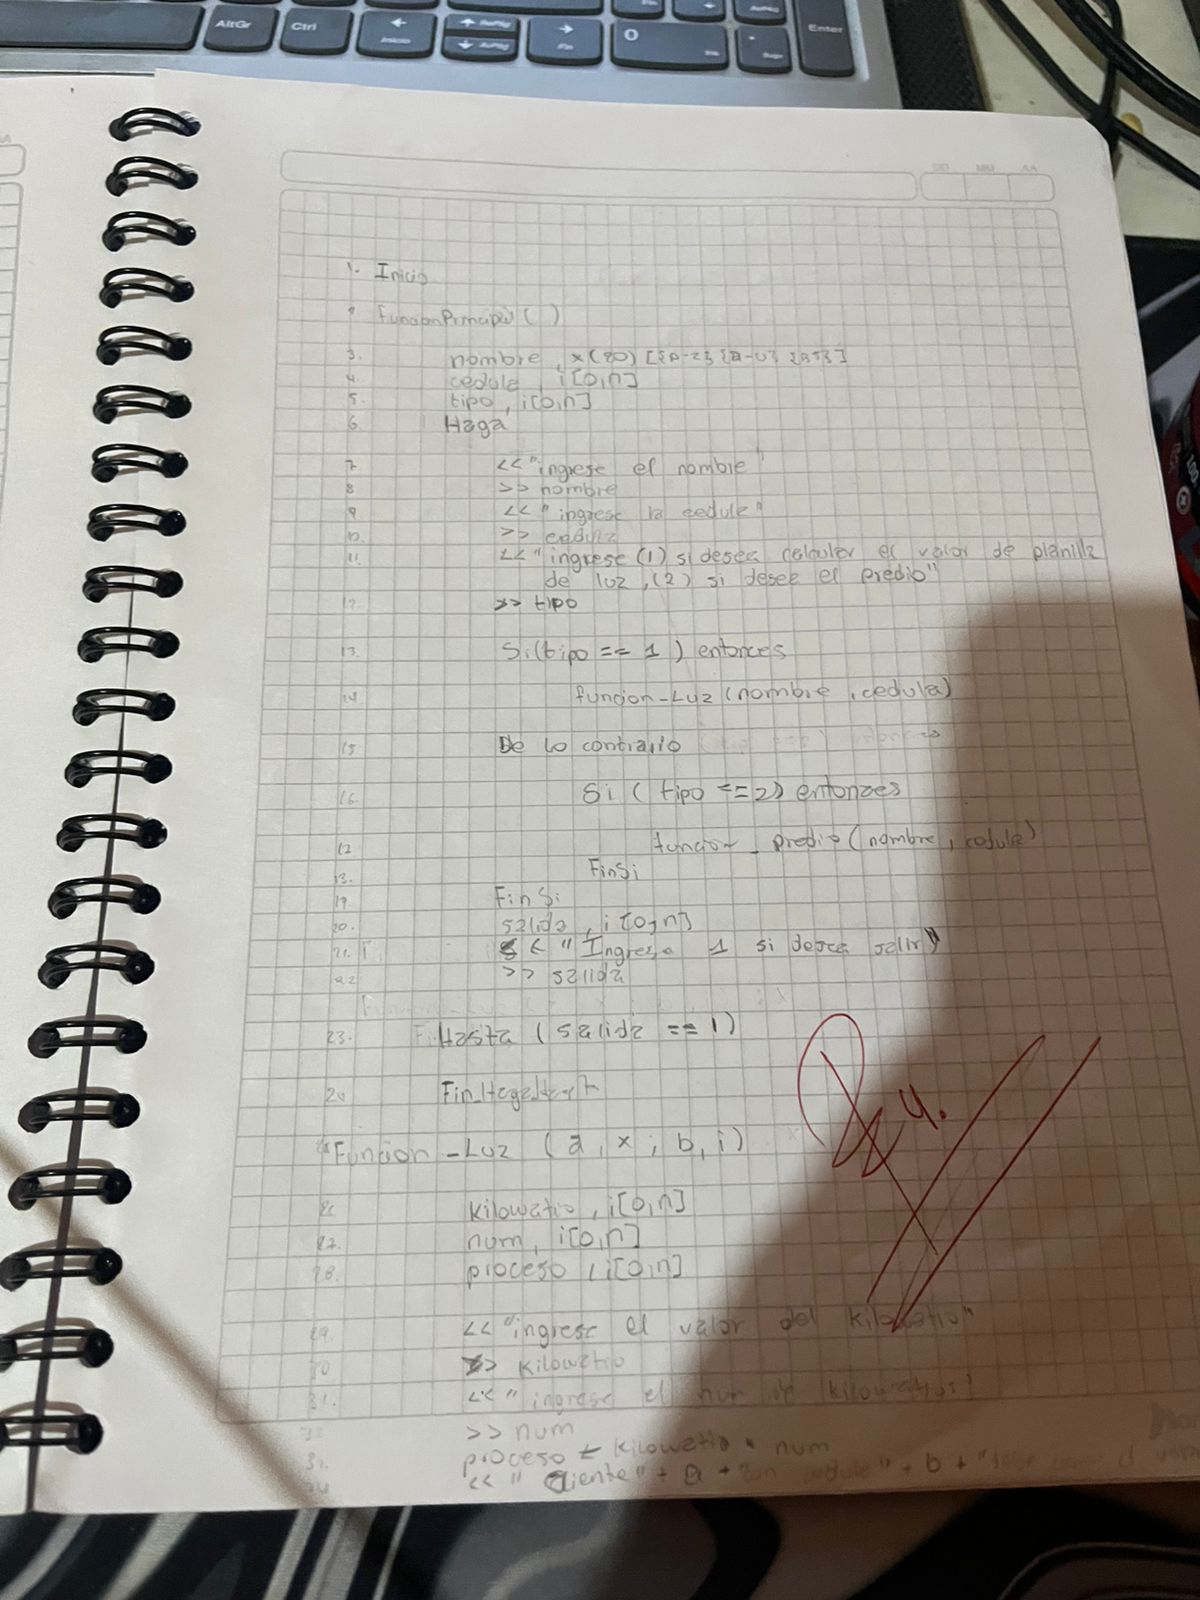 AltGr
Ctrl
Inicio
Fin
0
Ins
Supr
Enter
DD MM AA
1. Inicio
2 funcionPrincipal ( )
3. nombre, x(20) [{A-Z}
4. cedula, i[0,n]
5. tipo, i[0,n]
6. Haga
7 << "ingrese el nombre"
8 >> nombre
9 << "ingrese la cedula"
10. >> cedula
11. << "ingrese (1) si desea calcular el valor de planilla
de luz, (2) si desea el predio"
12 >> tipo
13. Si(tipo == 1) entonces
14 funcion-Luz (nombre, cedula)
15 De lo contrario
16. Si ( tipo ==2) entonces
funcion_predio (nombre, cedula)
FinSi
19 FinSi
20. salida, i [0,n]
21. "Ingrese 1 si desea salir"
22 >> salida
23. Hasta ( salida == 1)
Funcion -Luz ( a, x ; b, i )
kilowatio, i[0,n]
27. num, i[0,n]
28. proceso, i[0,n]
29. << "ingrese el valor del kilowatio"
30 >> kilowatio
31. << "ingrese el num de
>> num
proceso kilowatio * num
<< " Cliente" + a + " cedula" + b +